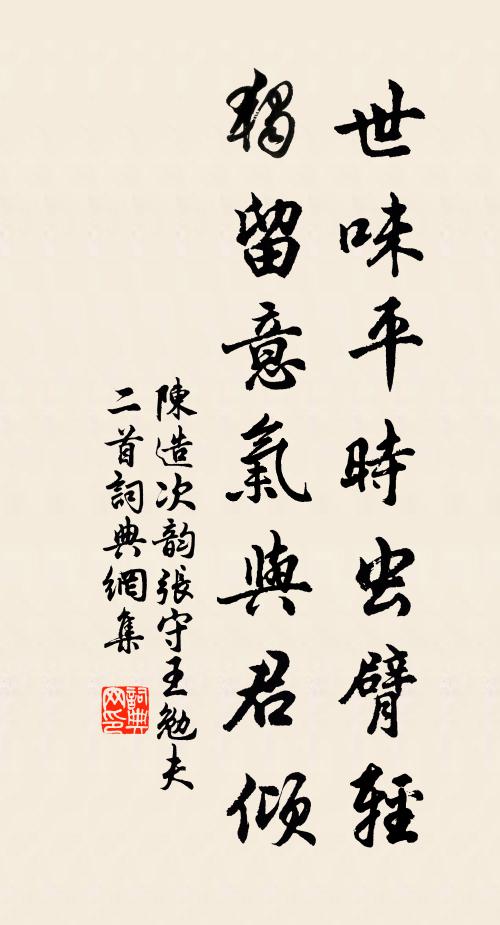 世味平時虫臂輕
獨留意氣與君傾
陳造次韵張守王勉夫
二首詞典網集
詞典網印